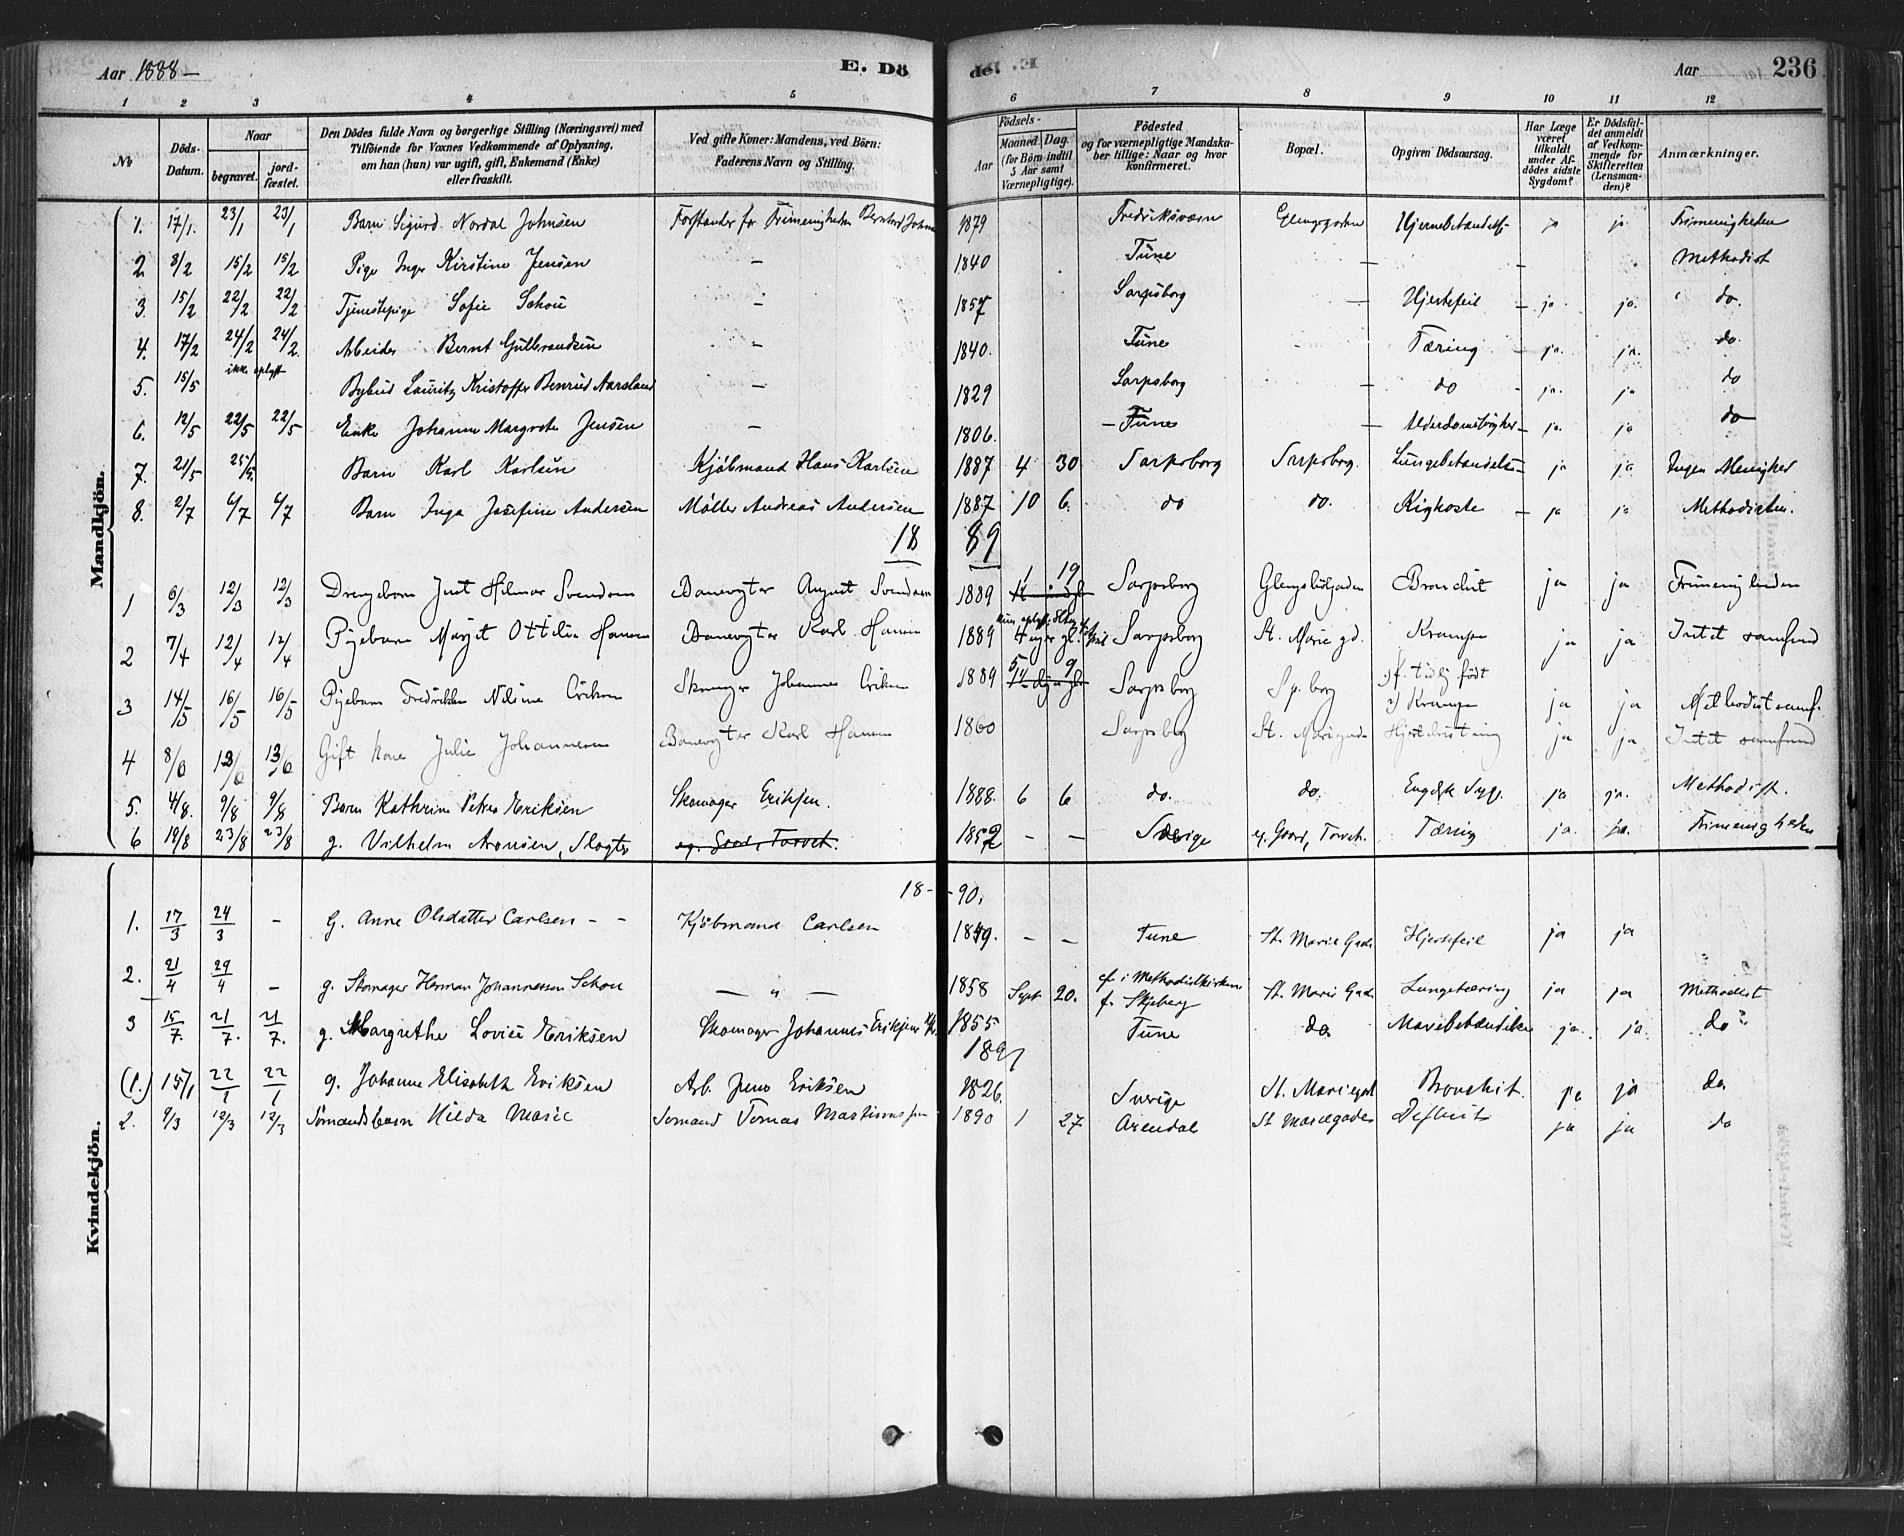 Aar 1888 –
E. Dö
de.
Aar
236
1 2 3 4 5 6 7 8 9 10 11 12
No
Döds-Datum.
Naar
begravet.
jordfæstet.
Den Dödes fulde Navn og borgerlige Stilling (Næringsvei) med
Tilföiende for Voxnes Vedkommende af Oplysning,
om han (hun) var ugift, gift, Enkemand (Enke)
eller fraskilt.
Ved gifte Koner: Mandens, ved Börn:
Faderens Navn og Stilling.
Födsels-
Aar
Maaned
Dag.
(for Börn indtil
5 Aar samt
Værnepligtige).
Födested
og for værnepligtige Mandska-
ber tillige: Naar og hvor
konfirmeret.
Bopæl.
Opgiven Dödsaarsag.
Har Læge
været
tilkaldt
under Af-
dödes sidste
Sygdom?
Er Dödsfal-
det anmeldt
af Vedkom-
mende for
Skifteretten
(Lensman-
den)?
Anmærkninger.
Mandkjön.
1. 17/1. 23/1 23/1 Barn Sigurd Nordal Johnsen Forstander for Frimenigheden Bernhard Johns 1879 Fredriksværn Glengsgaden Hjernebetændelse ja ja Frimenigheden
2. 8/2 15/2 15/2 Pige Inger Kirstine Jensen – 1840 Tune – – Methodist
3. 15/2 22/2 22/2 Tjenestepige Sofie Schou – 1857 Sarpsborg – Hjertefeil – ja. ja. do.
4. 17/2 24/2 24/2 Arbeider Bernt Gulbrandsen – 1840. Tune Tæring – ja. ja. do.
5. 15/5 ikke oplyst Bybud Lauritz Kristoffer Benrud Aarsland – 1829 Sarpsborg – do ja. ja do
6. 12/5 22/5 22/5 Enke Johanne Margrete Jensen – 1806. – Tune – Alderdomssvaghed – ja. ja do
7. 21/5 25/5. Barn Karl Karlsen Kjøbmand Hans Karlsen 1887 4 30 Sarpsborg Sarpsborg. Lungebetændelse – ja ja Ingen Menighed
8. 2/7 6/7 6/7 Barn Inga Josefine Andersen Møller Andreas Andersen 1887 10 6. do do. Kighoste – ja ja Methodisten.
18 89
1 6/3 12/3 12/3 Drengebarn Just Hilmar Svendsen Banevogter August Svendsen 1889 1 19 Sarpsborg Glengshulgaden Bronchit ja ja Frimenigheden
2 7/4 12/4 12/4 Pigebarn Marget Ottilie Hansen Banevogter Karl Hansen 1889 Sarpsborg St. Marie gd. Krampe ja ja Intet samfund
3 14/5 16/5 16/5 Pigebarn Fredrikke Nilsine Eriksen Skomager Johannes Eriksen 1889 5 9 Sarpsborg Sp. borg 1) f. tidlig født 2) Krampe ja ja Methodistsamf.
4 8/6 13/6 13/6 Gift kone Julie Johannesen Banevogter Karl Hansen 1860 Sarpsborg St. Mariegade ja ja Intet samfund
5. 4/8. 9/8 9/8 Barn Kathrine Petrea Eriksen Skomager Eriksen. 1888. 6 6 do. do. Engelsk Syge. ja ja. Methodist.
6 19/8 23/8 23/8 g. Vilhelm Aronsen, Slagter eg. Gaard, Torvet. 1852 – – Sverige eg. Gaard, Torvet. Tæring ja. ja. Frimenigheden
18 – – 90.
Kvindekjön.
1. 17/3 24/3 – G. Anne Olsdatter Carlsen – – Kjøbmand Carlsen 1849. – – Tune St. Marie Gade Hjertefeil ja ja
2. 21/4 29/4 – g. Skomager Herman Johannessen Schou – „ – 1858 Sept 20. cf. i Methodistkirken f. Skjeberg St. Marie Gade Lungetæring ja ja Methodist
3 15/7. 21/7. 21/7. g. Margrethe Lovise Eriksen Skomager Johannes Eriksens 1855 Tune do. Mavebetændelse ja. ja. do
1891
(1.) 15/1 22/1 22/1 g. Johanne Elisabeth Eriksen Arb. Jens Eriksen 1826. Sverige St. Mariegad Bronchit. ja ja do
2. 9/3 12/3 12/3 Sømandsbarn Hilda Marie Sømand Tomas Martinussen 1890 1 27 Arendal St Mariegade ja ja do